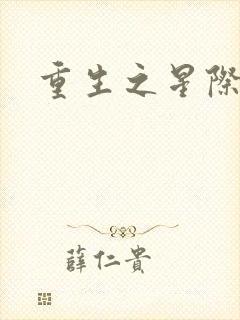 重生之星際
薛仁貴